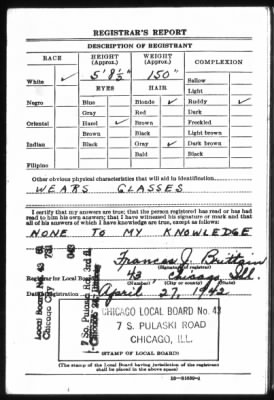 REGISTRAR'S REPORT
DESCRIPTION OF REGISTRANT
RACE
HEIGHT (Approx.)
WEIGHT (Approx.)
COMPLEXION
5' 8½"
150"
White ✓
Sallow
EYES
HAIR
Light
Negro
Blue
Blonde ✓
Ruddy ✓
Gray
Red
Dark
Oriental
Hazel ✓
Brown
Freckled
Brown
Black
Light brown
Indian
Black
Gray ✓
Dark brown
Bald
Black
Filipino
Other obvious physical characteristics that will aid in identification
WEARS GLASSES
I certify that my answers are true; that the person registered has read or has had
read to him his own answers; that I have witnessed his signature or mark and that
all of his answers of which I have knowledge are true, except as follows:
NONE TO MY KNOWLEDGE
Local Board No. 43 61
Chicago City 731
043
7 So. Pulaski Rd.
Frances J. Brittain
(Signature of registrar)
Registrar for Local Board 43 Chicago Ill.
(Number) (City or county) (State)
Date of registration April 27, 1942
CHICAGO LOCAL BOARD No. 43
7 S. PULASKI ROAD
CHICAGO, ILL.
(STAMP OF LOCAL BOARD)
(The stamp of the Local Board having jurisdiction of the registrant
shall be placed in the above space)